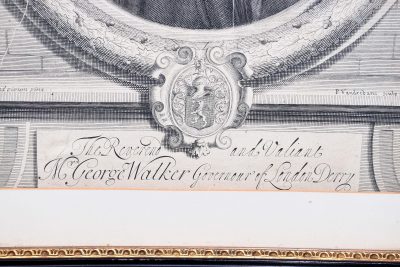 pinx:
P. Vandrebanc sculp.
The Reverend and Valiant
Mr George Walker Governour of London Derry